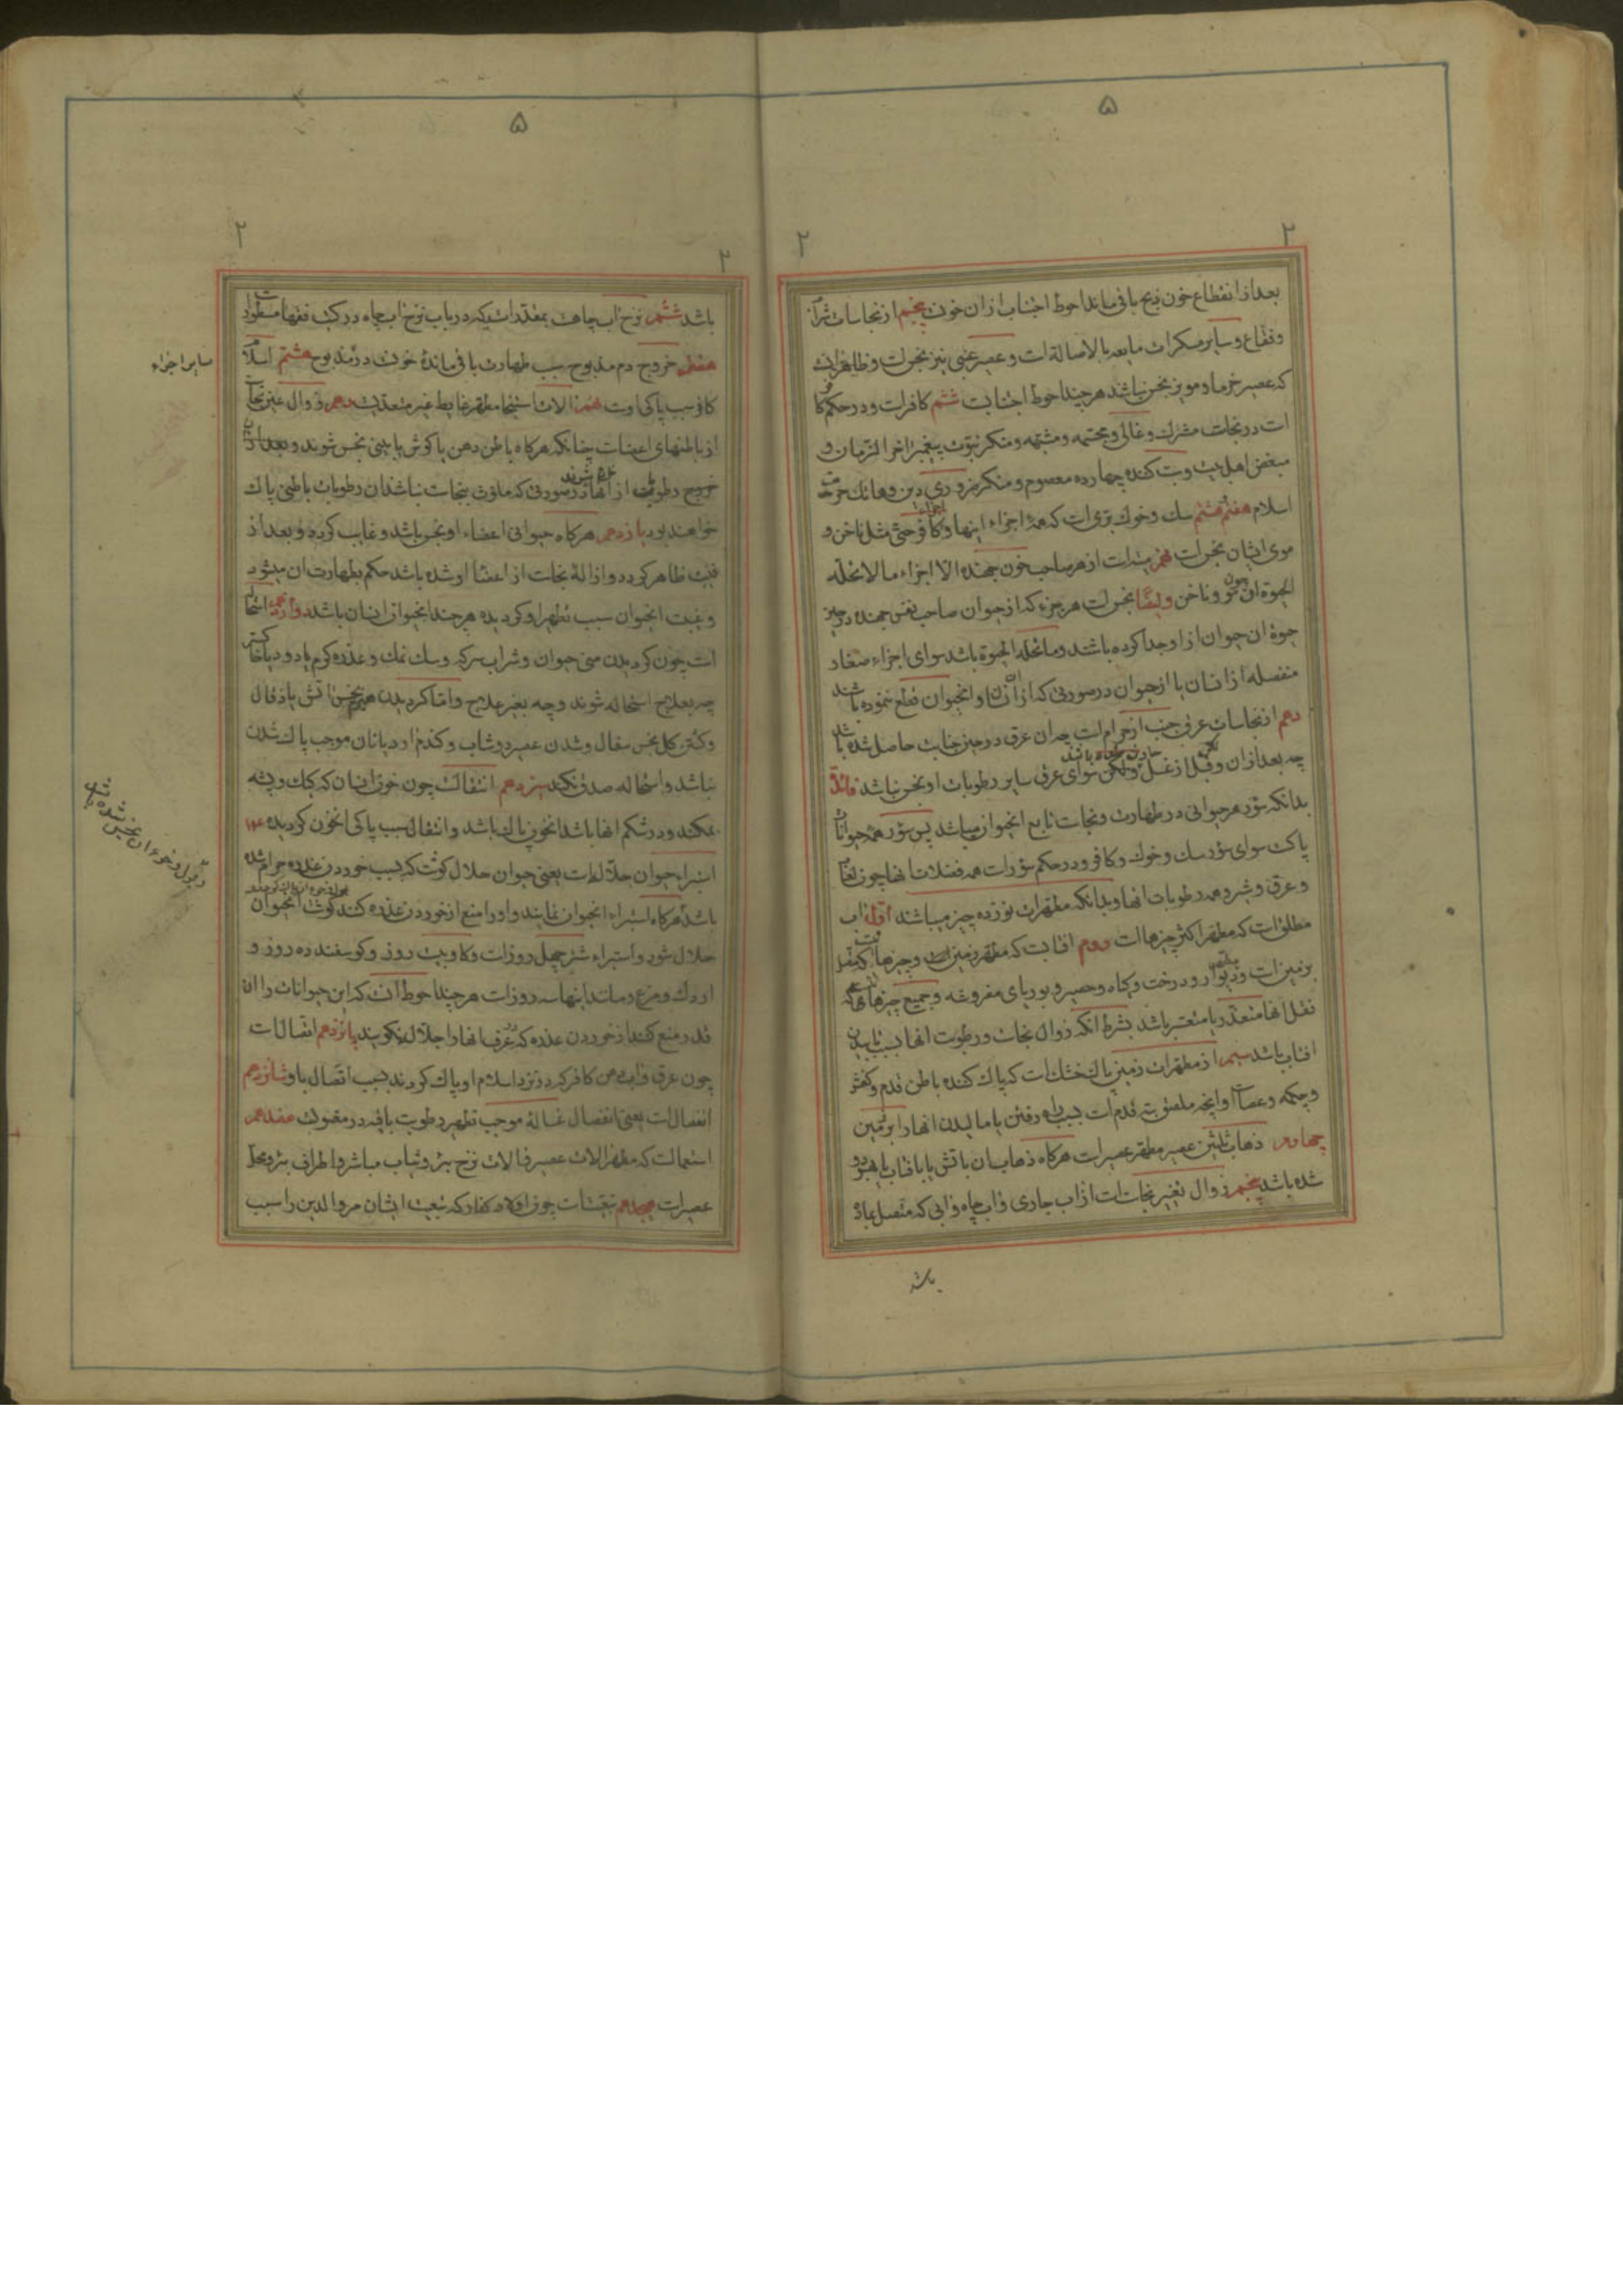 ۵
۲
۲
بعد از انقطاع خون ذبح باقی ماند احوط اجتناب از آن خونست پنجم از نجاسات شراب
و فقاع و سایر مسکرات مایعه بالاصاله است و عصیر عنبی نیز نجس است و ظاهر اینست
که عصیر خرما و مویز نجس نباشد هر چند احوط اجتنابست ششم کافر است و در حکم کافر
است در نجاست مشرک و غالی و مجسمه و مشبهه و منکر نبوت پیغمبر آخر الزمان و
مبغض اهل بیت و سب کننده چهارده معصوم و منکر ضروری دین و هاتک حرمت
اسلام هفتم هشتم سک و خوک بری است که همه اجزاء اینها و اجزاء کافر حتی مثل ناخن و
موی ایشان نجس است نهم میته است از هر صاحب خون جهنده الا اجزاء ما لا تحله
الحیوة آن چون مو و ناخن و ایضا نجس است هر جزء که از حیوان صاحب نفس جهنده در حین
حیوة آن حیوان از او جدا کرده باشند و ما تحله الحیوة باشد سوای اجزاء صغار
منفصله از انسان یا از حیوان در صورتی که از آن انسان و آن حیوان قطع ننموده باشند
دهم از نجاسات عرق جنب از حرام است چه آن عرق در حین جنابت حاصل شده باشد
چه بعد از آن و قبل از غسل ولکن سوای عرق سایر رطوبات او نجس نباشد فائدة
بدانکه سؤر هر حیوانی در طهارت و نجاست تابع آن حیوان میباشد پس سؤر همه حیوانات
پاک سوای سؤر سک و خوک و کافر و در حکم سؤر است همه فضلات آنها چون لعاب
و عرق و شیر و همه رطوبات آنها و بدانکه مطهرات نوزده چیز میباشند اول آب
مطلق است که مطهر اکثر چیزها است دوم آفتابست که مطهر زمین است و چیزها که متصل
بزمین است و دیوار و درخت و کیاه و حصیر و بوریای مفروشه و جمیع چیزهائی که
نقل آنها متعذر یا متعسر باشد بشرط آنکه زوال نجاست و رطوبت آنها بسبب تابیدن
آفتاب باشد سیم از مطهرات زمین پاک خشک است که پاک کننده باطن قدم و کفش
و چکمه و عصا است و آنچه ملصق بته قدم است بسبب راه رفتن یا مالیدن آنها را بر زمین
چهارم ذهاب ثلثین عصیر مطهر عصیر است هرکاه ذهاب آن باتش یا بافتاب یا بهر دو
شده باشد پنجم زوال تغییر نجاست است از آب جاری و آب چاه و آبی که متصل بماده
باشد
۵
۲
۲
باشد ششم نزح آب چاهست بمقدارات که در باب نزح آب چاه در کتب فقها مسطور است
هفتم خروج دم مذبوح سبب طهارت باقی مانده خونست در مذبوح هشتم اسلام
کافر سبب پاکی اوست نهم آلات استنجا مطهر غایط غیر متعدیست دهم زوال عین نجاست
از باطنهای اعضاست چنانکه هرکاه باطن دهن یا کوش یا بینی نجس شوند و بعد از آن
خروج رطوبت از آنها در صورتی که ملوث بنجاست نباشد آن رطوبات باطنی پاک
خواهند بود یازدهم هرکاه حیوانی اعضاء او نجس باشد و غایب کردد و بعد از
غیبت ظاهر کردد و ازاله نجاست از اعضا او شده باشد حکم بطهارت آن میشود
و غیبت آن حیوان سبب تطهیر او کردیده هر چند آن حیوان انسان باشد دوازدهم استحاله
است چون کردیدن منی حیوان و شراب سرکه و سک نمک و عذره کرم یا دود یا خاکستر
چه بعلاج استحاله شوند و چه بغیر علاج و اما کردیدن هیزم نجس آتش یا ذغال
و کشتن کل نجس سفال و شدن عصیر دوشاب و کندم آرد یا نان موجب پاک شدن
نباشد و استحاله صدق نکند سیزدهم انتقالست چون خون انسان که کک و پشه
بمکند و در شکم آنها باشد آن خون پاک باشد و انتقال سبب پاکی آن خون کردیده
استبراء حیوان جلال است یعنی حیوان حلال کوشت که بسبب خوردن عذره حرام شده
باشد هرکاه استبراء آن حیوان نمایند و او را منع از خوردن عذره کنند کوشت آن حیوان
حلال شود و استبراء شتر چهل روز است و کاو بیست روز و کوسفند ده روز و
اردک و مرغ و مانند اینها سه روز است هر چند احوط آنست که این حیوانات را آن
قدر منع کنند از خوردن عذره که در عرف آنها را جلال نکویند پانزدهم اتصال است
چون عرق و آب دهن کافر که در نزد اسلام او پاک کردند بسبب اتصال باو شانزدهم
انفصال است یعنی انفصال غساله موجب تطهیر رطوبت باقیه در مغسولست هفدهم
استعمالست که مطهر آلات عصیر و آلات نزح بئر و ثیاب مباشر و اطراف بئر و محل
عصیر است هیجدهم تبعیت است چون اولاد کفار که تبعیت ایشان مر والدین را سبب
سایر اجزاء